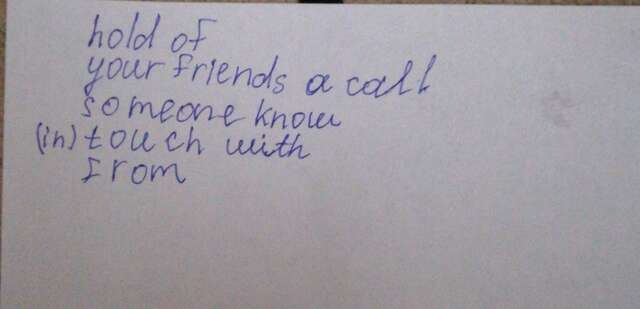 hold of
your friends a call
someone know
(in) touch with
from